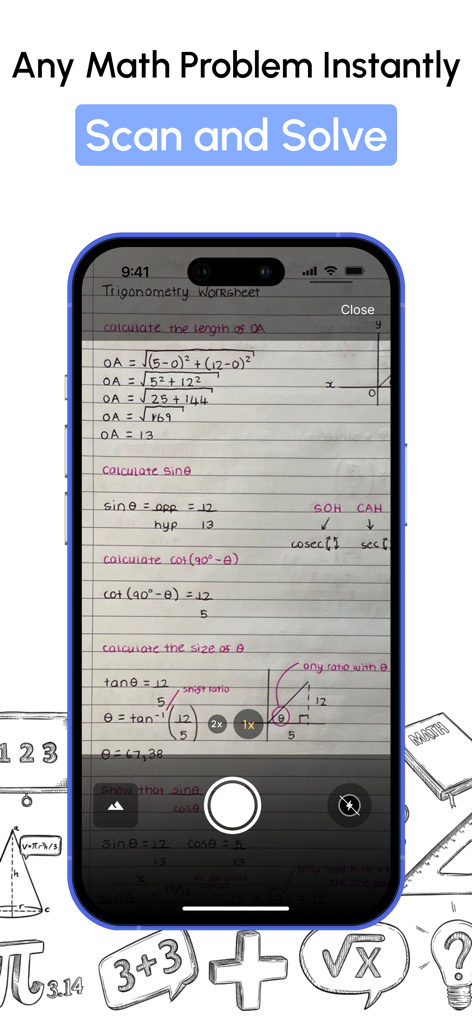 Any Math Problem Instantly
Scan and Solve
9:41
Trigonometry Worksheet
Close
calculate the length of OA
y
OA = √(5-0)² + (12-0)²
OA = √5² + 12²
x
OA = √25 + 144
0
OA = √169
OA = 13
calculate sinθ
sinθ = opp = 12
hyp 13
SOH CAH
cosec sec
calculate cot(90°-θ)
cot (90°-θ) = 12
5
calculate the size of θ
any ratio with θ
tanθ = 12
5
shift ratio
12
θ = tan⁻¹ (12
5)
2x
1x
θ
5
θ = 67,38
show that sinθ
cosθ
sinθ = 12 cosθ = 5
13 13
sinθ
1 2 3
V=πr²h/3
h
r
c
MATH
π 3.14
3+3
√x
?